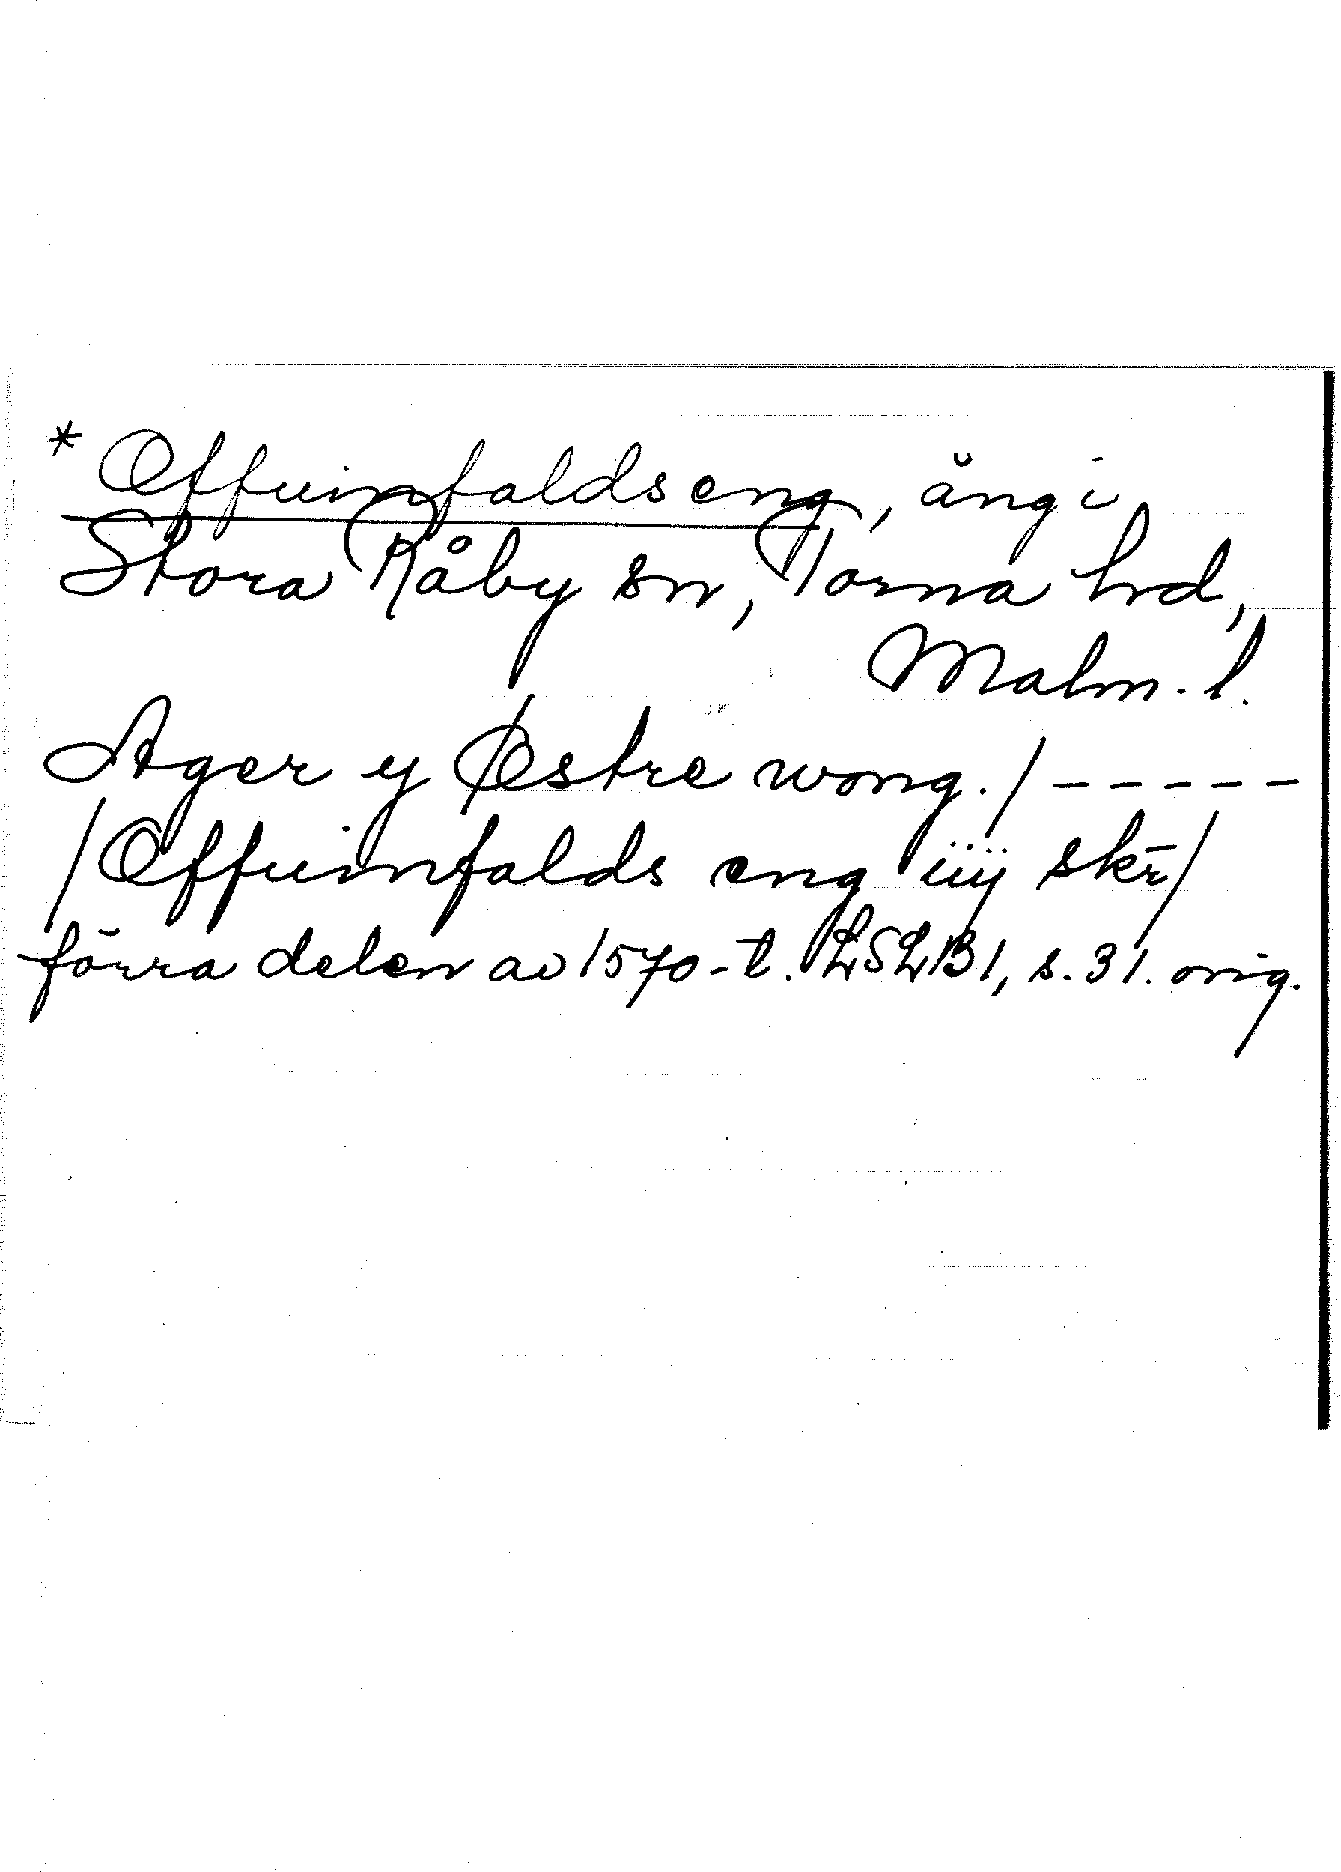 * Offuinfaldseng, äng i
Stora Råby sn, Torna hrd,
Malm. l.
Ager y Østre wong. / - - - - -
/ Offuinfalds eng iiij skr̄ /
förra delen av 1570-t. LSLB1, s. 31. orig.